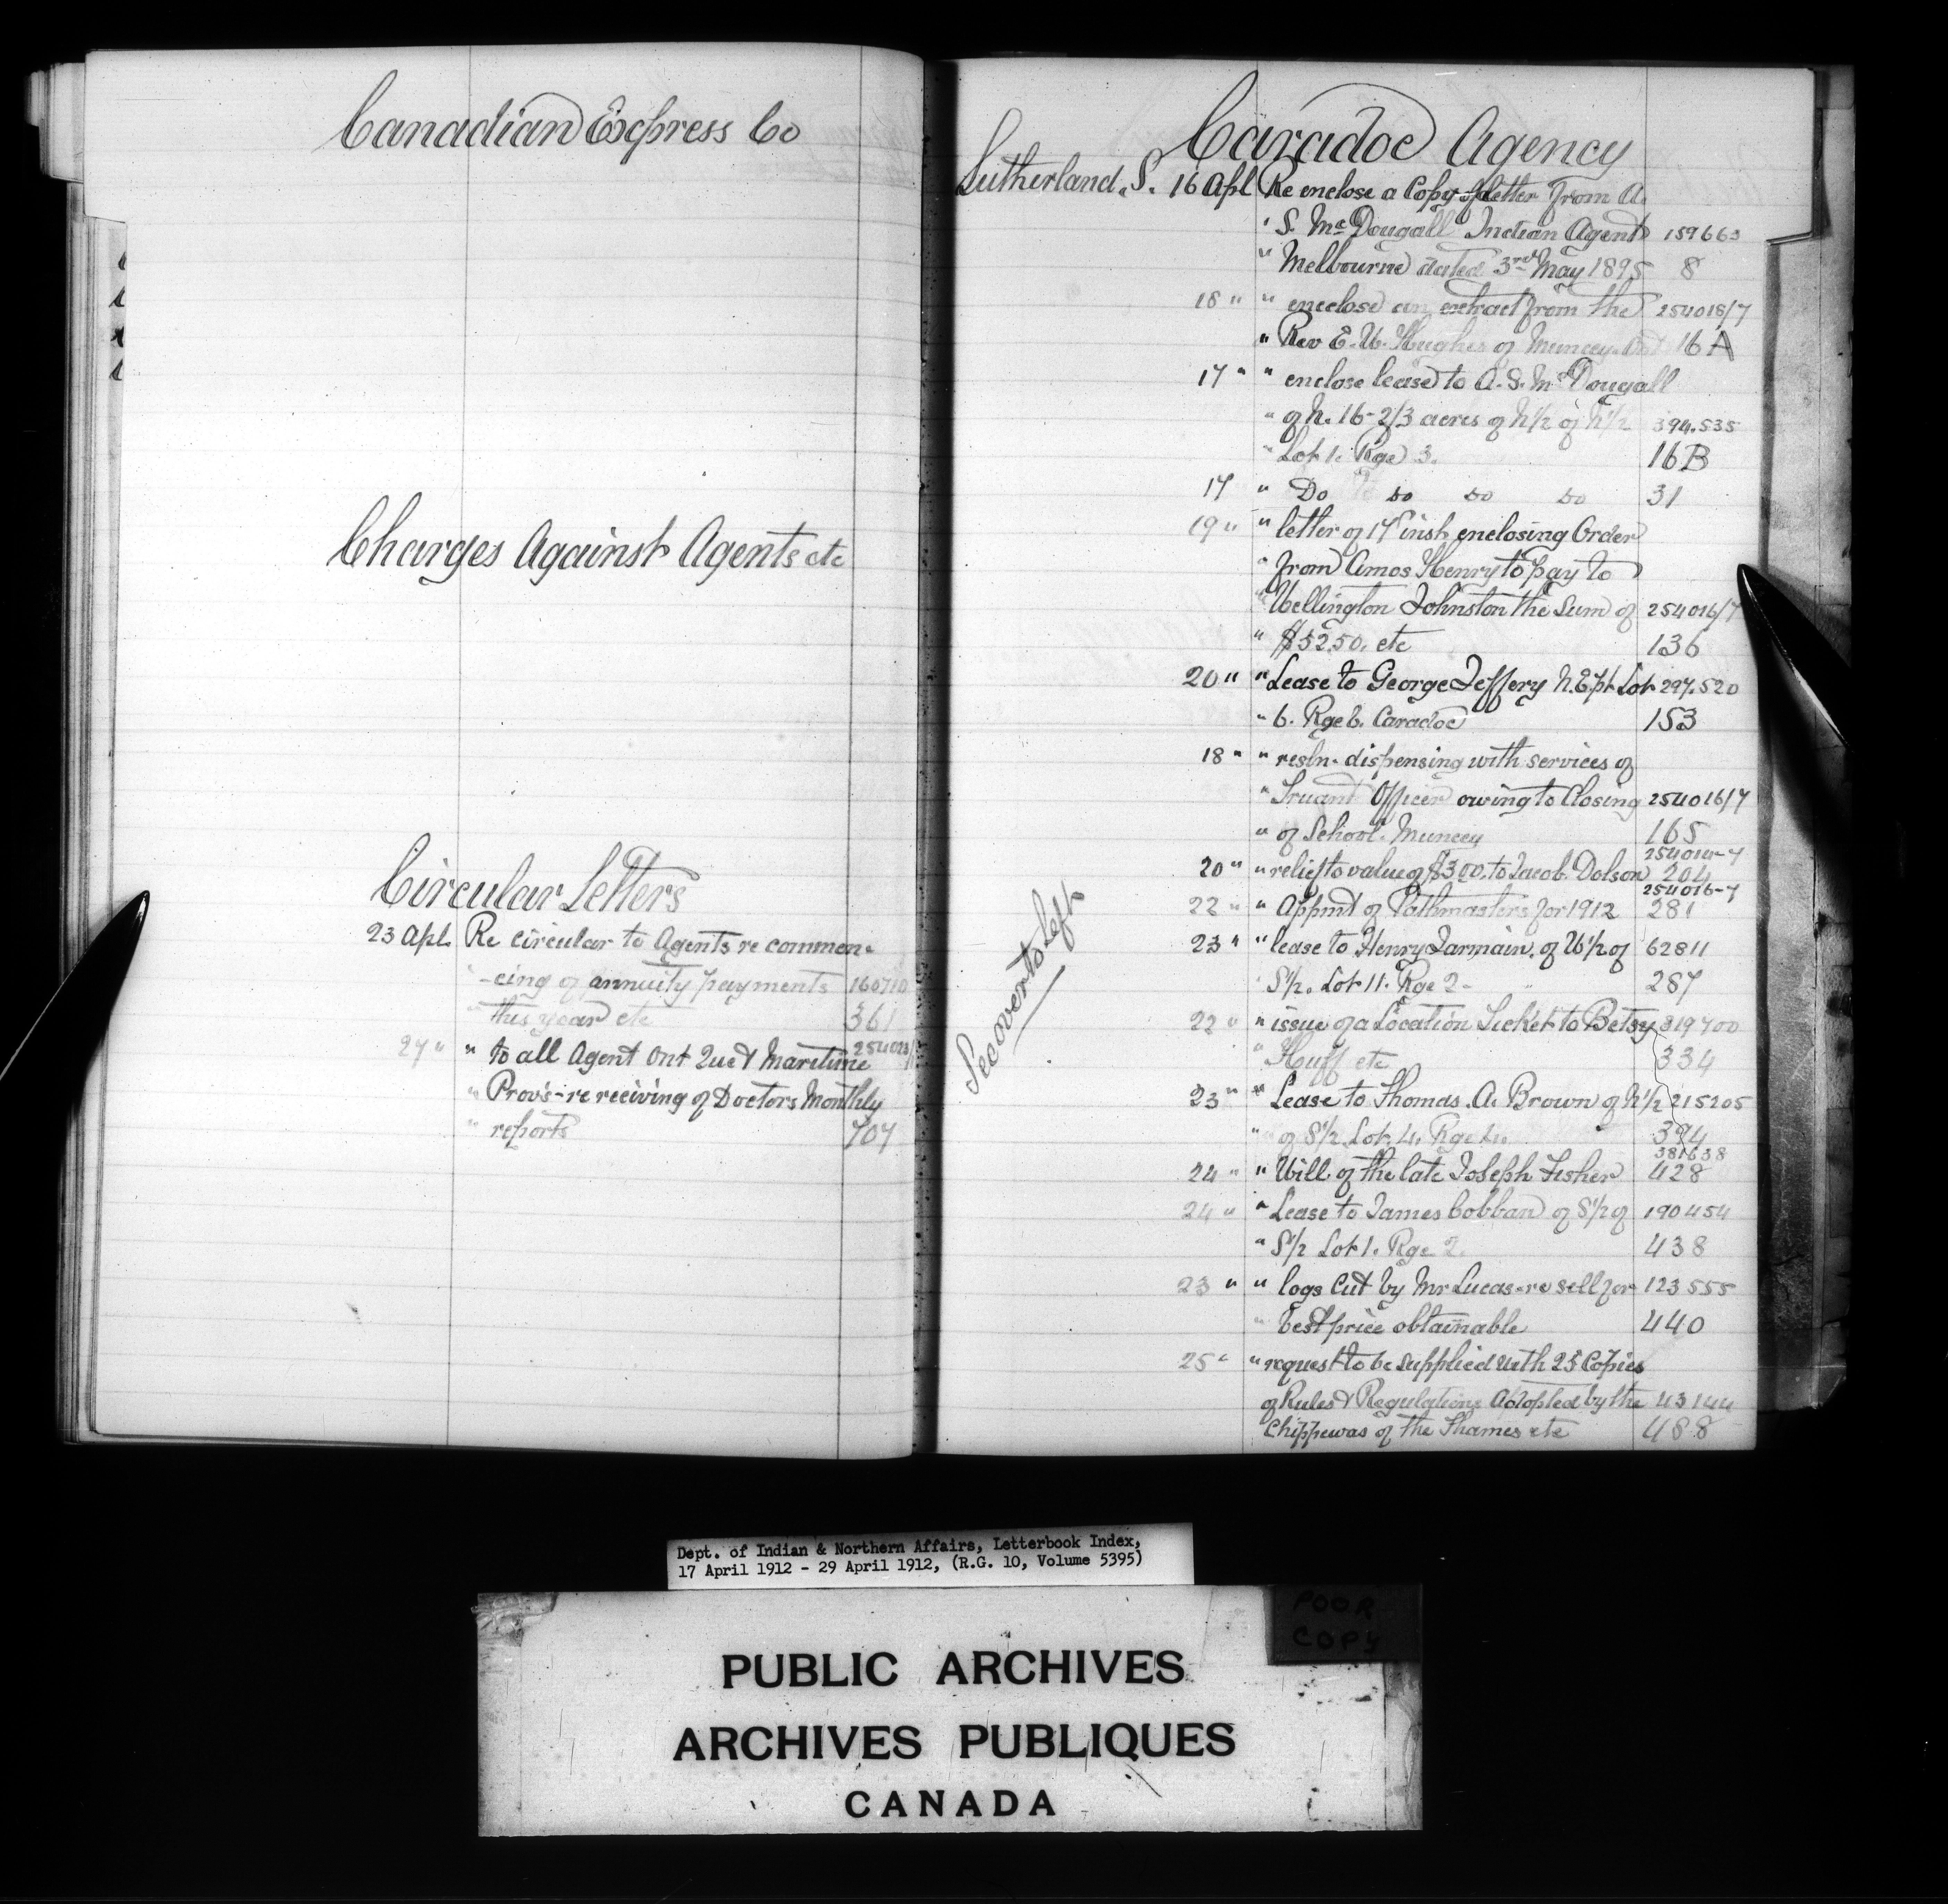 Canadian Express Co
Charges Against Agents etc
Circular Letters
23 Apl. Re circular to Agents re commen-
-cing of annuity payments 160710
" this year etc 361
27 " " to all Agent Ont Que & Maritime 254023/1
" Provs-re receiving of Doctors Monthly
" reports 707
Caradoc Agency
Sutherland. S. 16 Apl Re enclose a Copy of letter from A.
" S. McDougall Indian Agent 159663
" Melbourne dated 3rd May 1895 8
18 " " enclose an extract from the 254018/7
" Rev E. W. Hughes of Muncey. Ont 16 A
17 " " enclose lease to A. S. McDougall
" of N. 16-2/3 acres of N1/2 of N1/2 394.535
" Lot 1. Rge 3. 16 B
17 " Do Do Do Do 31
19 " " letter of 17 inst. enclosing Order
" from Amos Henry to pay to
" Wellington Johnston the Sum of 254016/7
" $52.50. etc 136
20 " " Lease to George Jeffery N.E pt Lot 297.520
" 6. Rge 6. Caradoc 153
18 " " resln. dispensing with services of
" Truant Officer owing to Closing 254016/7
" of School. Muncey 165
254014-7
20 " " relief to value of $3.00. to Jacob. Dolson 204
254016-7
22 " " Appmt of Pathmasters for 1912 281
23 " " lease to Henry Jarmain. of W1/2 of 62811
" S1/2. Lot 11. Rge 2- 287
22 " " issue of a Location Ticket to Betsy 319700
" Huff etc 334
23 " " Lease to Thomas. A. Brown of N1/2 215205
" of S1/2 Lot. 4. Rge 4. 394
381638
24 " " Will of the late Joseph Fisher 428
24 " " Lease to James Cobban of S1/2 of 190454
" S1/2 Lot 1. Rge 2. 438
23 " " logs Cut by Mr Lucas-re sell for 123555
" best price obtainable 440
25 " " request to be supplied with 25 Copies
of Rules & Regulations Adopted by the 43144
Chippewas of the Thames etc 488
See over to left
Dept. of Indian & Northern Affairs, Letterbook Index,
17 April 1912 - 29 April 1912, (R.G. 10, Volume 5395)
POOR
COPY
PUBLIC ARCHIVES
ARCHIVES PUBLIQUES
CANADA